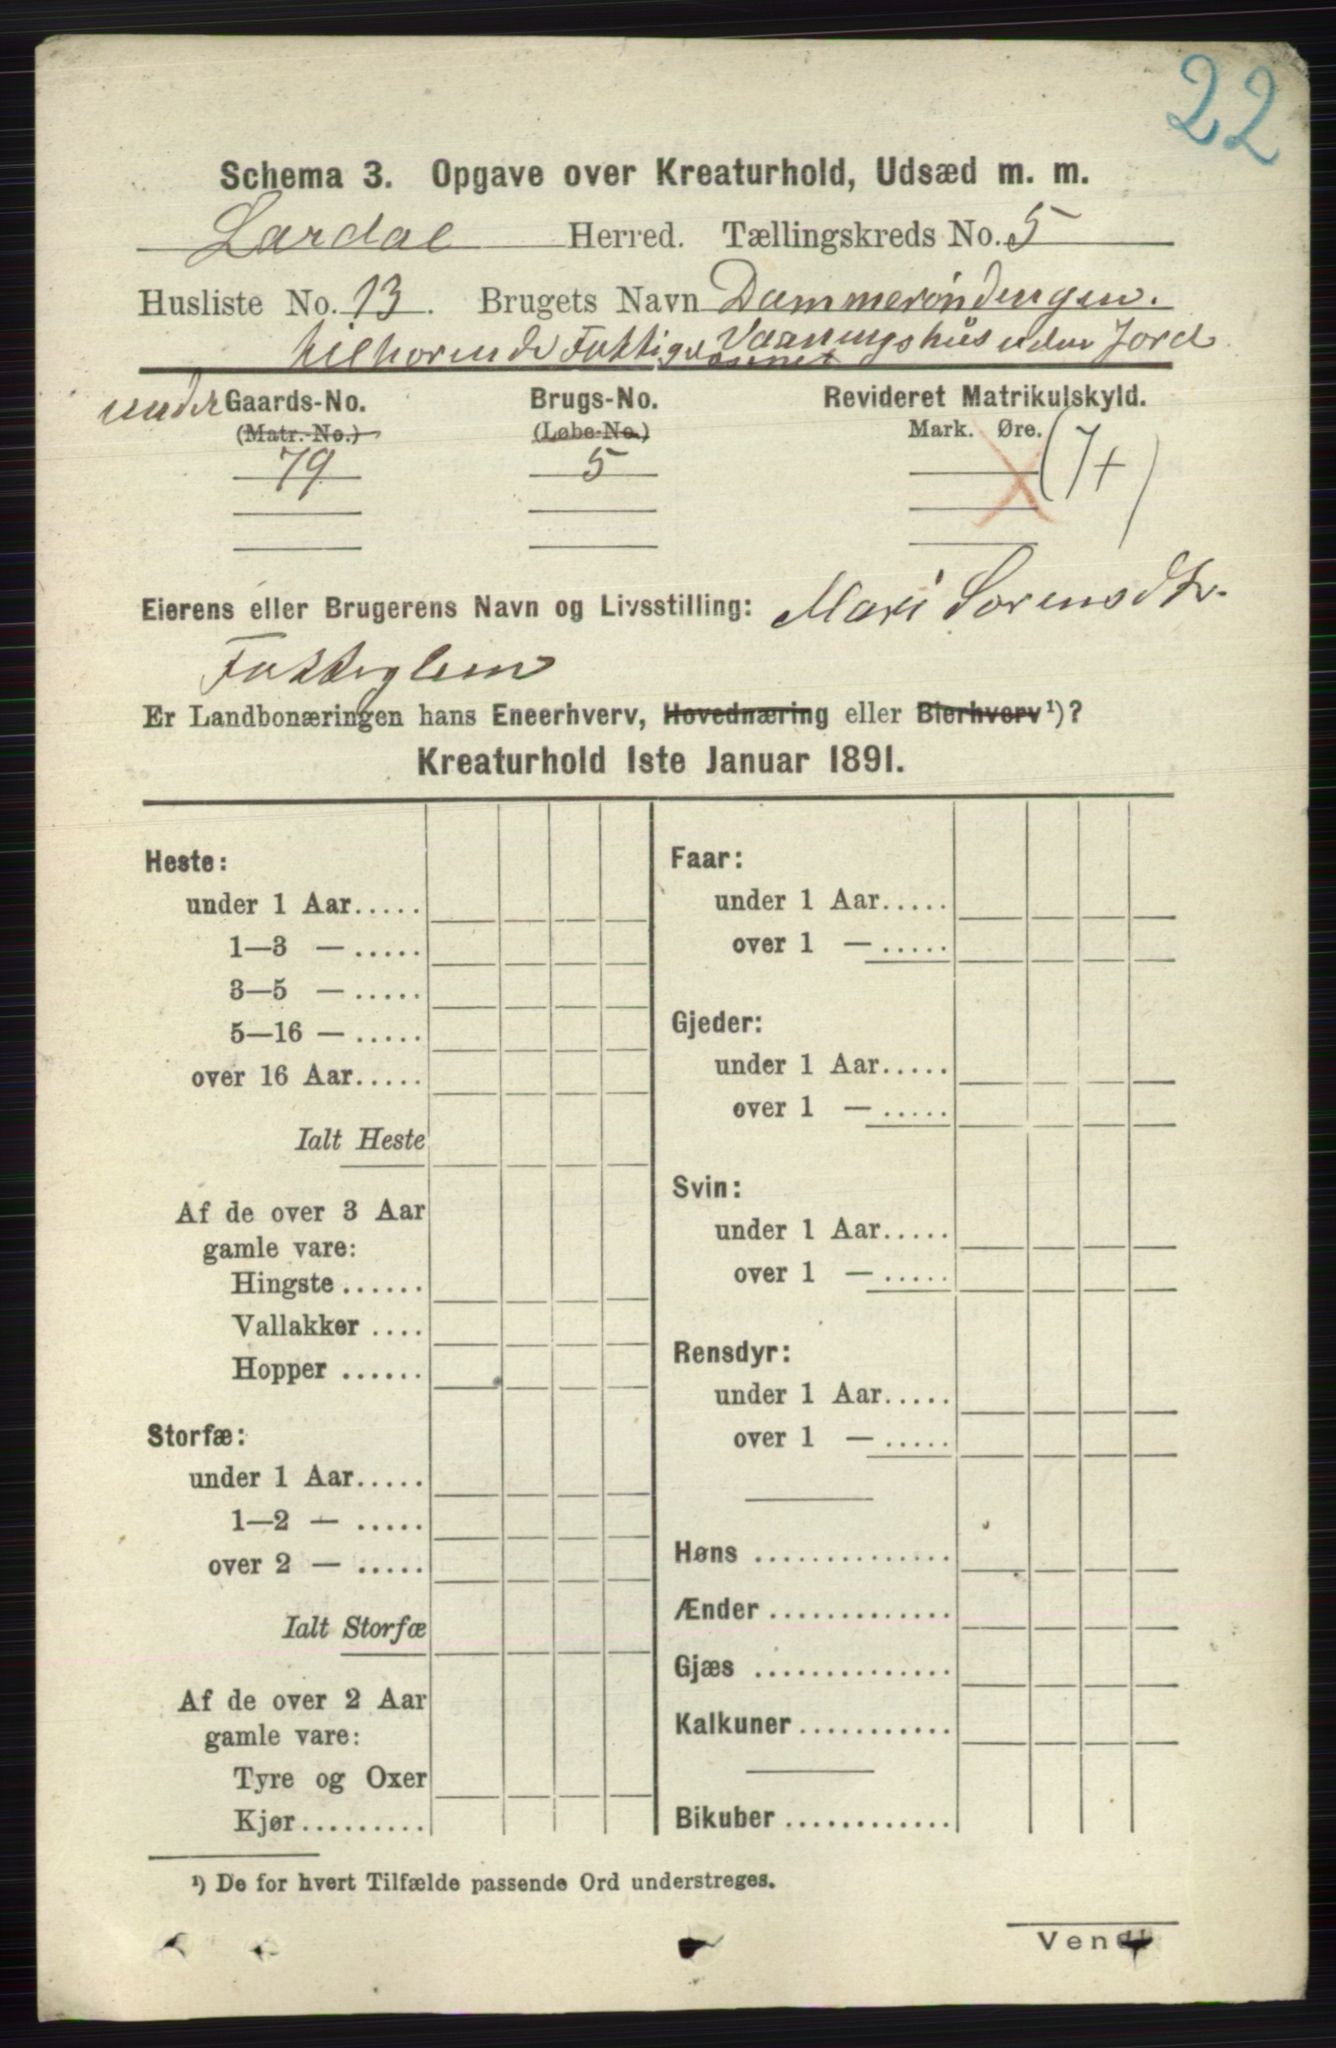 22
Schema 3. Opgave over Kreaturhold, Udsæd m. m.
Lardal Herred. Tællingskreds No. 5
Husliste No. 13. Brugets Navn Dammeröndingen.
tilhorende Fattigvæsenet Vaaningshus uden Jord
under Gaards-No. Brugs-No. Revideret Matrikulskyld.
(Matr.-No.) (Løbe-No.) Mark. Øre.
79 5 (7+)
Eierens eller Brugerens Navn og Livsstilling: Mari Sorensdtr.
Fattiglem
Er Landbonæringen hans Eneerhverv, Hovednæring eller Bierhverv ¹)?
Kreaturhold 1ste Januar 1891.
Heste:
under 1 Aar.....
1—3 — .....
3—5 — .....
5—16 — .....
over 16 Aar.....
Ialt Heste
Af de over 3 Aar
gamle vare:
Hingste......
Vallakker ....
Hopper ......
Storfæ:
under 1 Aar.....
1—2 — .....
over 2 — .....
Ialt Storfæ
Af de over 2 Aar
gamle vare:
Tyre og Oxer
Kjør.........
Faar:
under 1 Aar.....
over 1 — .....
Gjeder:
under 1 Aar.....
over 1 — .....
Svin:
under 1 Aar.....
over 1 — .....
Rensdyr:
under 1 Aar.....
over 1 — .....
Høns ..............
Ænder .............
Gjæs ..............
Kalkuner...........
Bikuber ............
¹) De for hvert Tilfælde passende Ord understreges.
Vend!